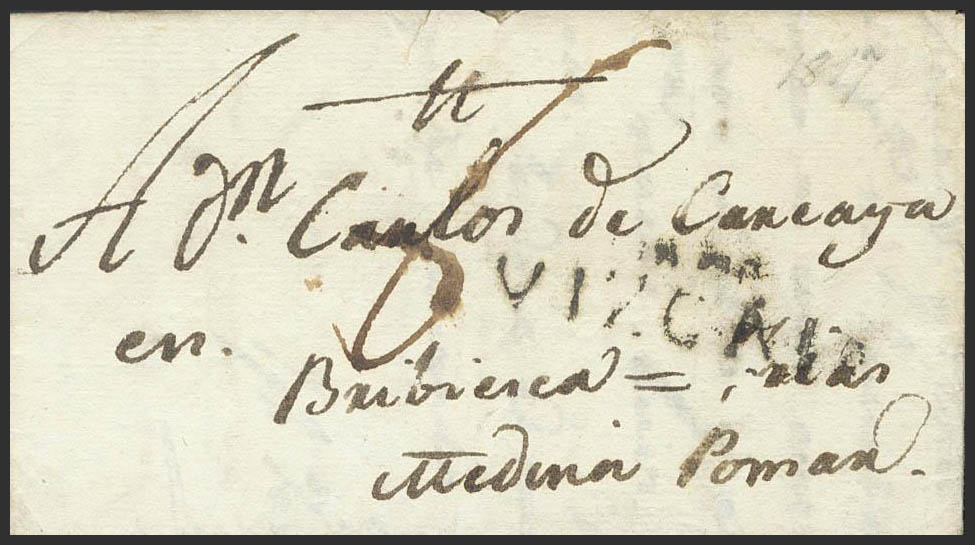 1817
A Dn. Carlos de Carcaya
VIZCAIA
en.
Bribiesca =
Medina Pomar.